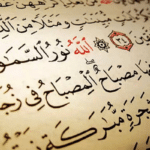 مُّبَيِّنَٰتٍ وَمَثَلًا مِّنَ
۝٣٤ ٱللَّهُ نُورُ ٱلسَّمَٰوَ
هَا مِصْبَاحٌ ٱلْمِصْبَاحُ فِى زُجَ
جَرَةٍ مُّبَٰرَكَةٍ